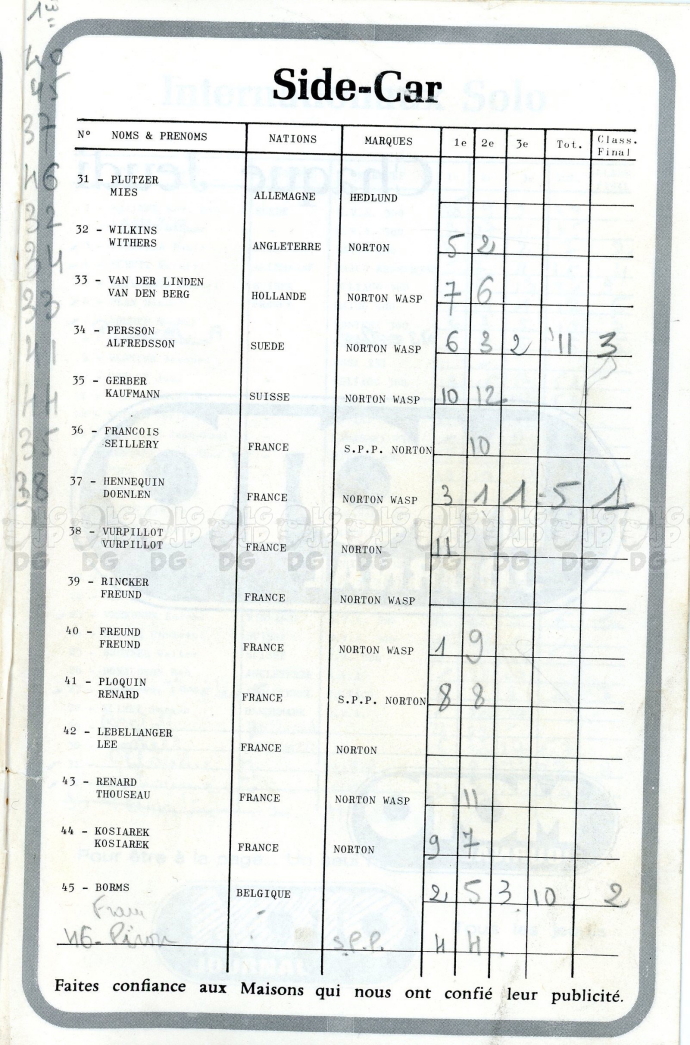 1e
40
45
37
46
32
34
33
41
44
35
38
Side-Car
N° NOMS & PRENOMS NATIONS MARQUES 1e 2e 3e Tot. Class. Final
31 - PLUTZER
MIES ALLEMAGNE HEDLUND
32 - WILKINS
WITHERS ANGLETERRE NORTON 5 2
33 - VAN DER LINDEN
VAN DEN BERG HOLLANDE NORTON WASP 7 6
34 - PERSSON
ALFREDSSON SUEDE NORTON WASP 6 3 2 11 3
35 - GERBER
KAUFMANN SUISSE NORTON WASP 10 12
36 - FRANCOIS
SEILLERY FRANCE S.P.P. NORTON 10
37 - HENNEQUIN
DOENLEN FRANCE NORTON WASP 3 1 1 5 1
38 - VURPILLOT
VURPILLOT FRANCE NORTON 11
39 - RINCKER
FREUND FRANCE NORTON WASP
40 - FREUND
FREUND FRANCE NORTON WASP 1 9
41 - PLOQUIN
RENARD FRANCE S.P.P. NORTON 8 8
42 - LEBELLANGER
LEE FRANCE NORTON
43 - RENARD
THOUSEAU FRANCE NORTON WASP 11
44 - KOSIAREK
KOSIAREK FRANCE NORTON 9 7
45 - BORMS BELGIQUE 2 5 3 10 2
46 - Piron S.P.P. 4 4
Faites confiance aux Maisons qui nous ont confié leur publicité.